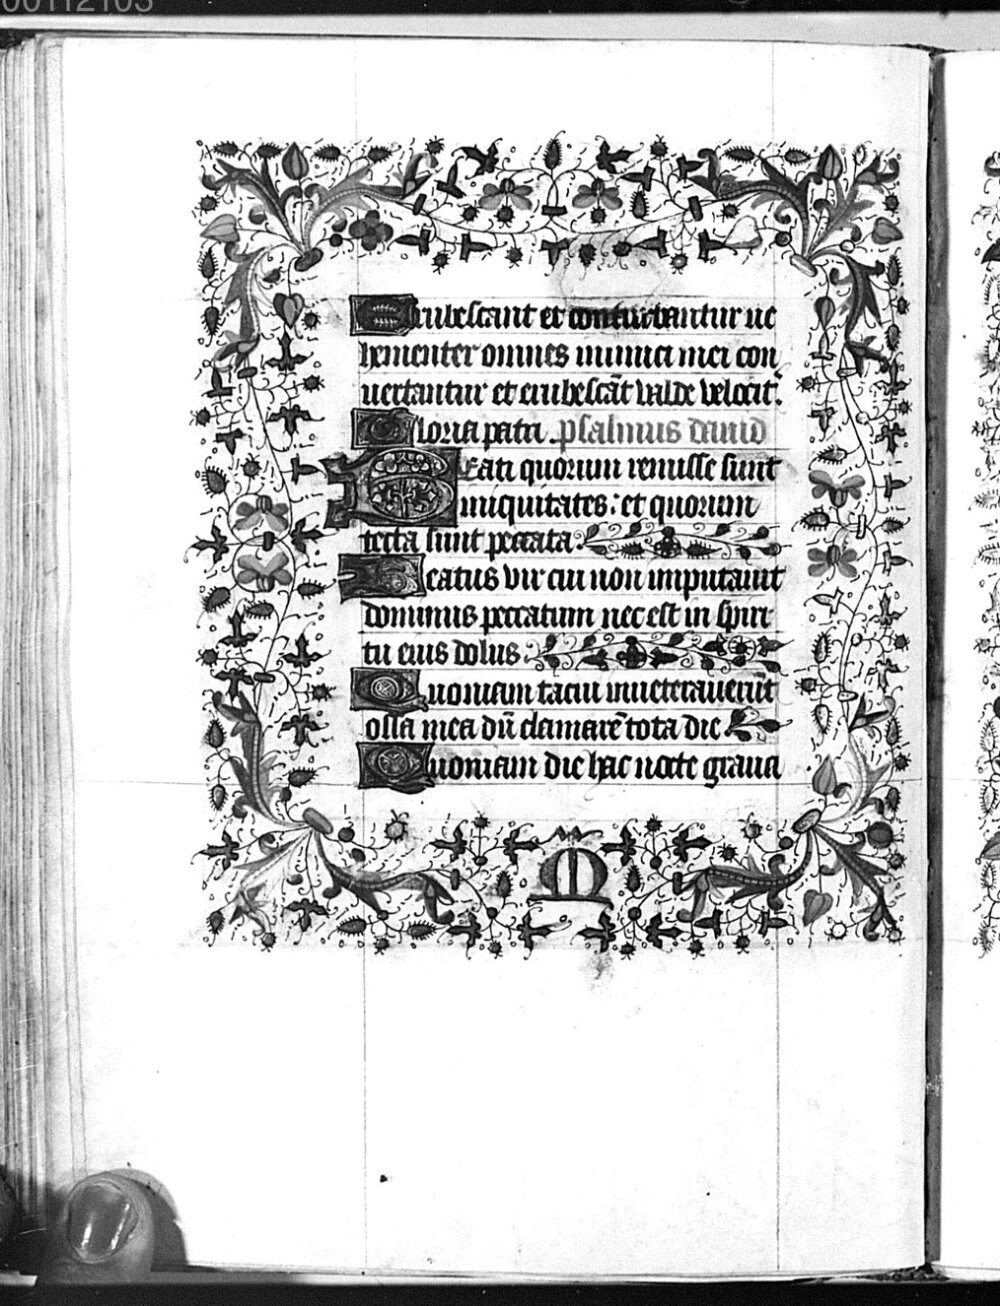 00112103
Erubescant et conturbantur ue
hementer omnes inimici mei con
uertantur et erubescāt valde velocit᷑.
Gloria patri. psalmus dauid
Beati quorum remisse sunt
iniquitates: et quorum
tecta sunt peccata:
Beatus vir cui non imputauit
dominus peccatum nec est in spiri
tu eius dolus:
Quoniam tacui inueterauerūt
ossa mea dū clamarē tota die
Quoniam die hac nocte graua
M